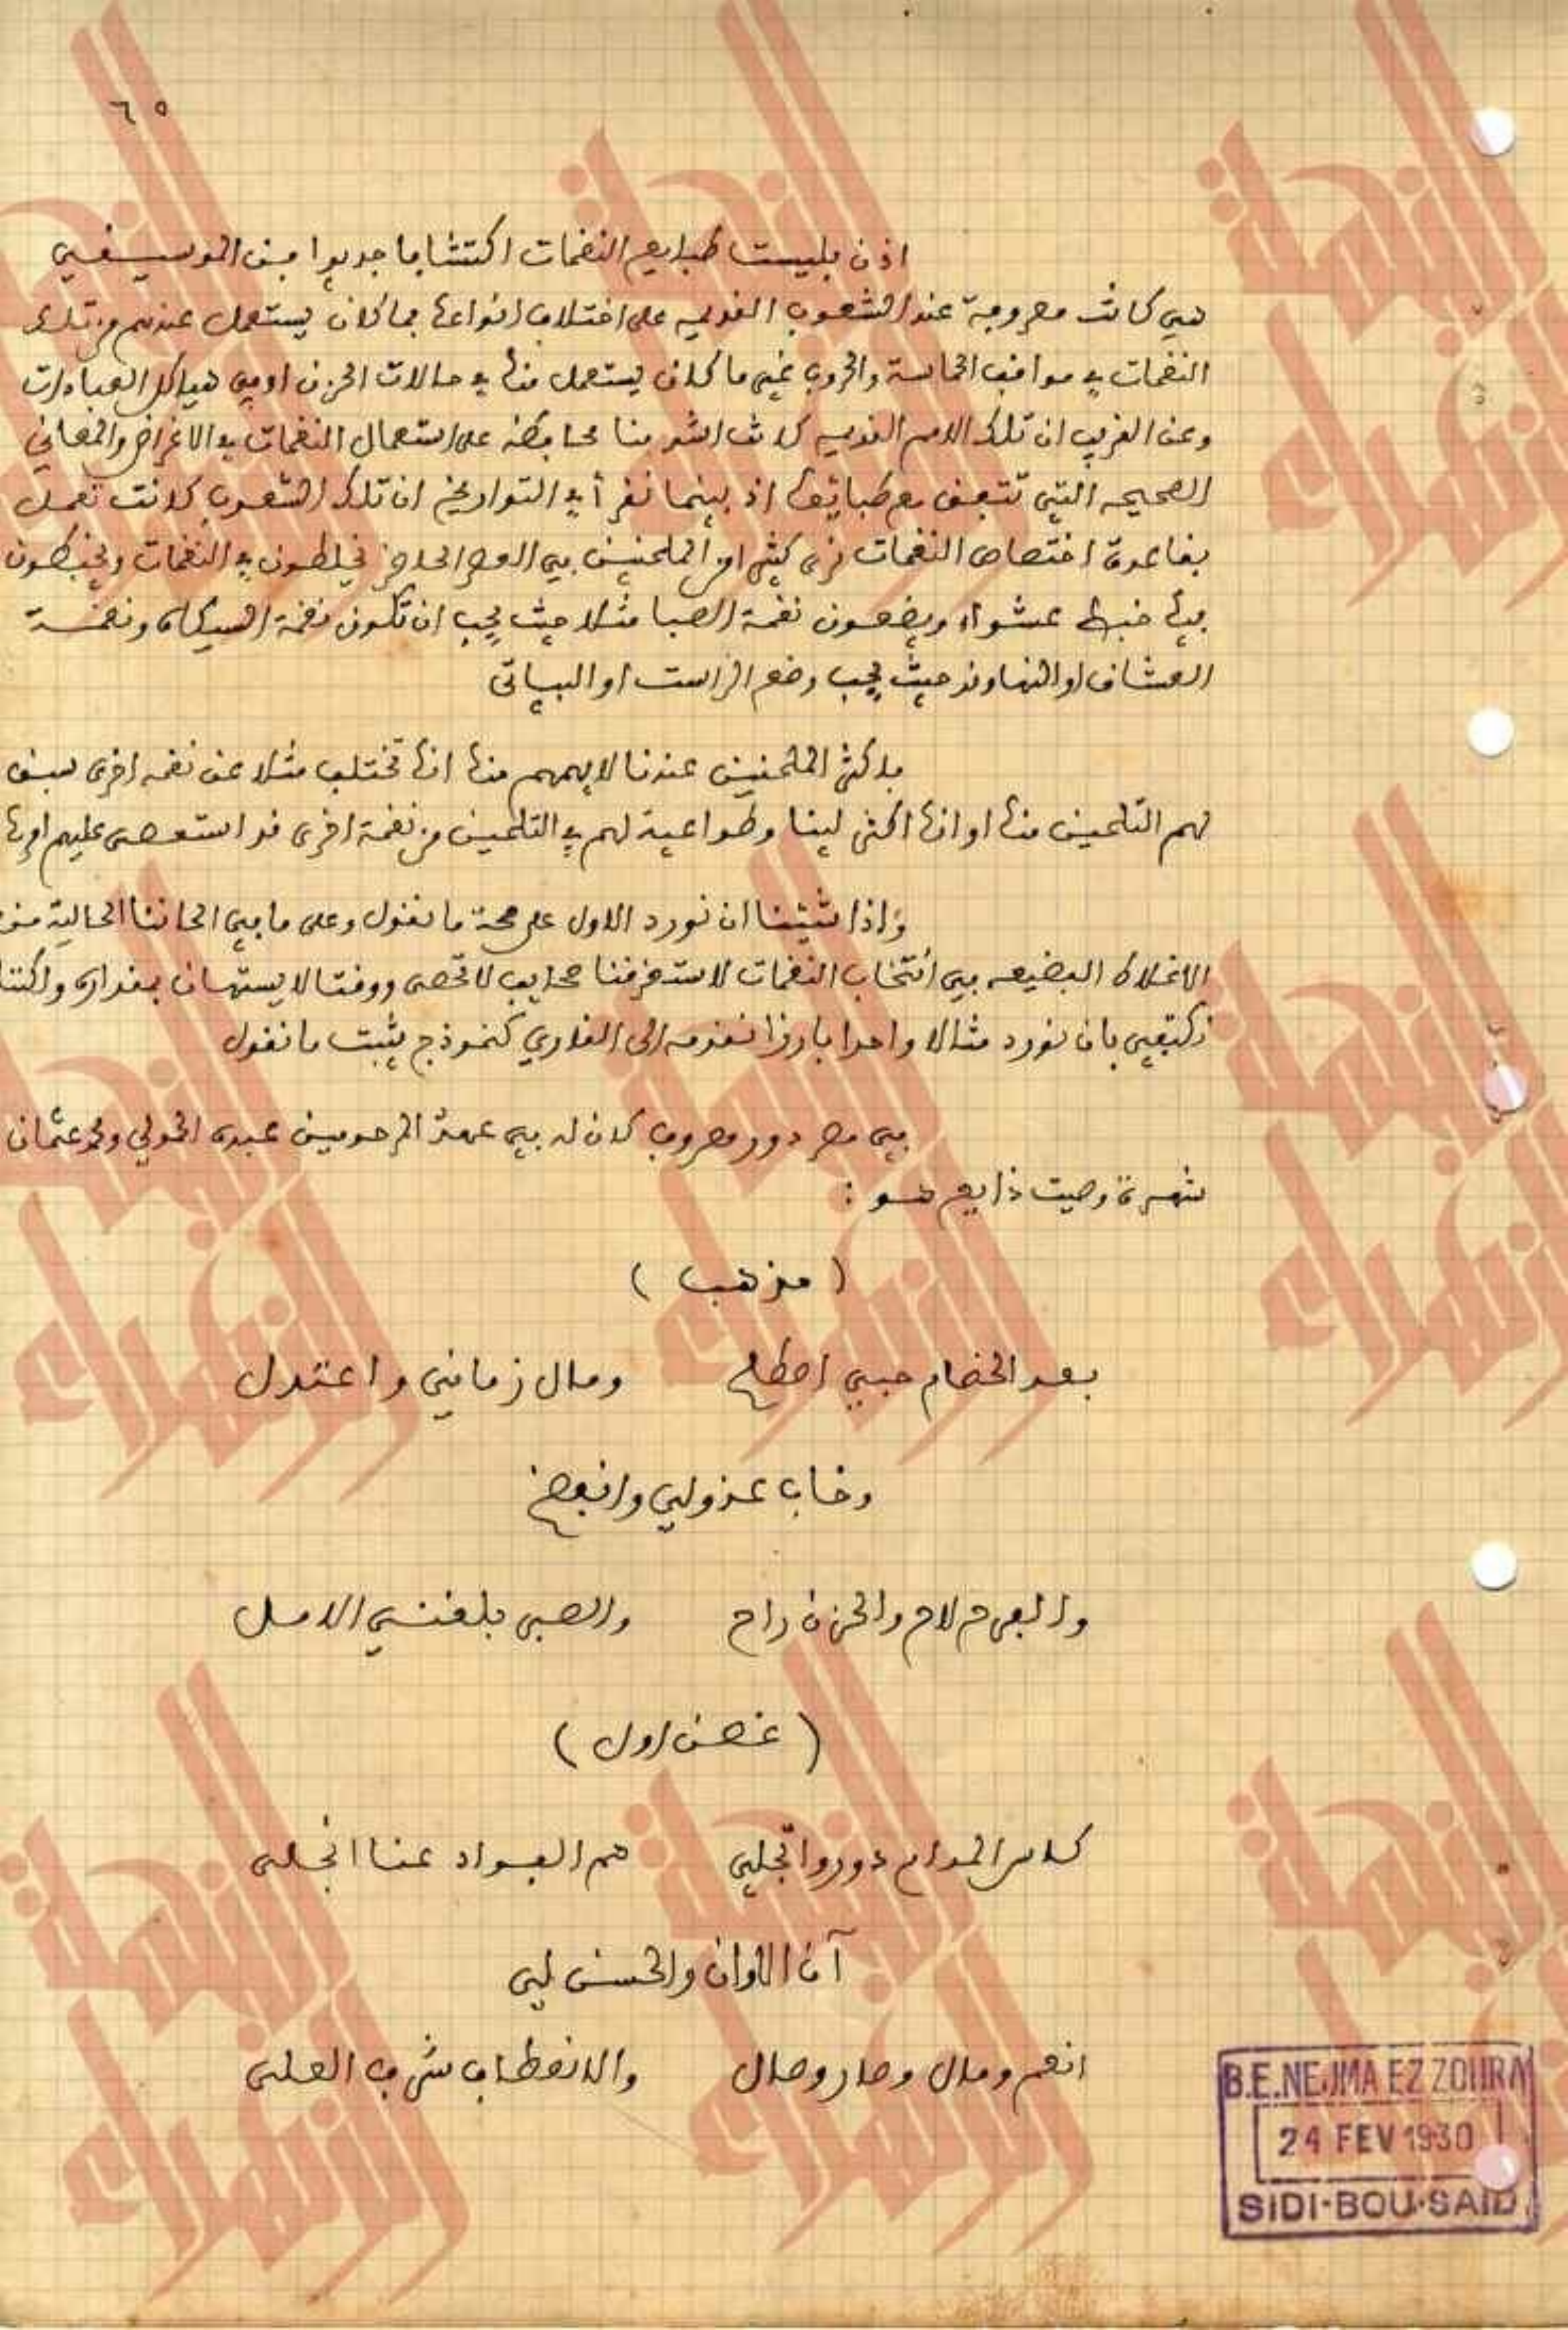 ٦٥
اذن فليست طبايع النغمات اكتشافا جديدا بفن الموسيقى
فهي كانت معروفة عند الشعوب القديمه على اختلاف انواعها فما كان يستعمل عندهم من تلك
النغمات في مواقف الحماسة والحروب غير ما كان يستعمل منها في حالات الحزن او في هياكل العبادات
وعن الغريب ان تلك الامم القديمه كانت اشد منا محافظه على استعمال النغمات في الاغراض والمعاني
الصحيحه التي تتفق مع طبائعها اذ بينما نقرأ في التواريخ ان تلك الشعوب كانت تعمل
بقاعدة اختصاص النغمات نرى كثيرا من الملحنين في العصر الحاضر يخلطون في النغمات ويخبطون
فيها خبط عشواء ويضعون نغمة الصبا مثلا حيث يجب ان تكون نغمة السيكاه ونغمة
العشاق او النهاوند حيث يجب وضع الراست او البياتى
فاكثر الملحنين عندنا لا يهمهم منها انها تختلف مثلا عن نغمه اخرى سبق
لهم التلحين منها او انها اكثر لينا وطواعية لهم في التلحين من نغمة اخرى قد استعصى عليهم
واذا شئنا ان نورد الاول على صحة ما نقول وعلى ما في الحاننا الحالية من
الاغلاط الفضيعه في انتخاب النغمات لاستغرقنا صحايف لا تحصى ووقتا لا يستهان بمقداره ولكننا
نكتفي بان نورد مثالا واحدا بارزا نقدمه الى القاري كنموذج يثبت ما نقول
في مصر دور معروف كان له في عهد المرحومين عبده الحمولي ومحمد عثمان
شهرة وصيت ذايع هو :
( مذهب )
بعد الخصام حبي اصطلح ومال زماني واعتدل
وخاب عذولي وانفضح
والفرح لاح والحزن راح والصبر بلغني الامل
( غصن اول )
كاس المدام دوروا تجلي هم الفواد عنا انجلى
آن الاوان والحسن لي
انعم ومال وصار وصال والانعطاف شرف العلى
B.E.NEJMA EZ ZOHRA
24 FEV 1930
SIDI-BOU-SAID
النجمة الزهراء